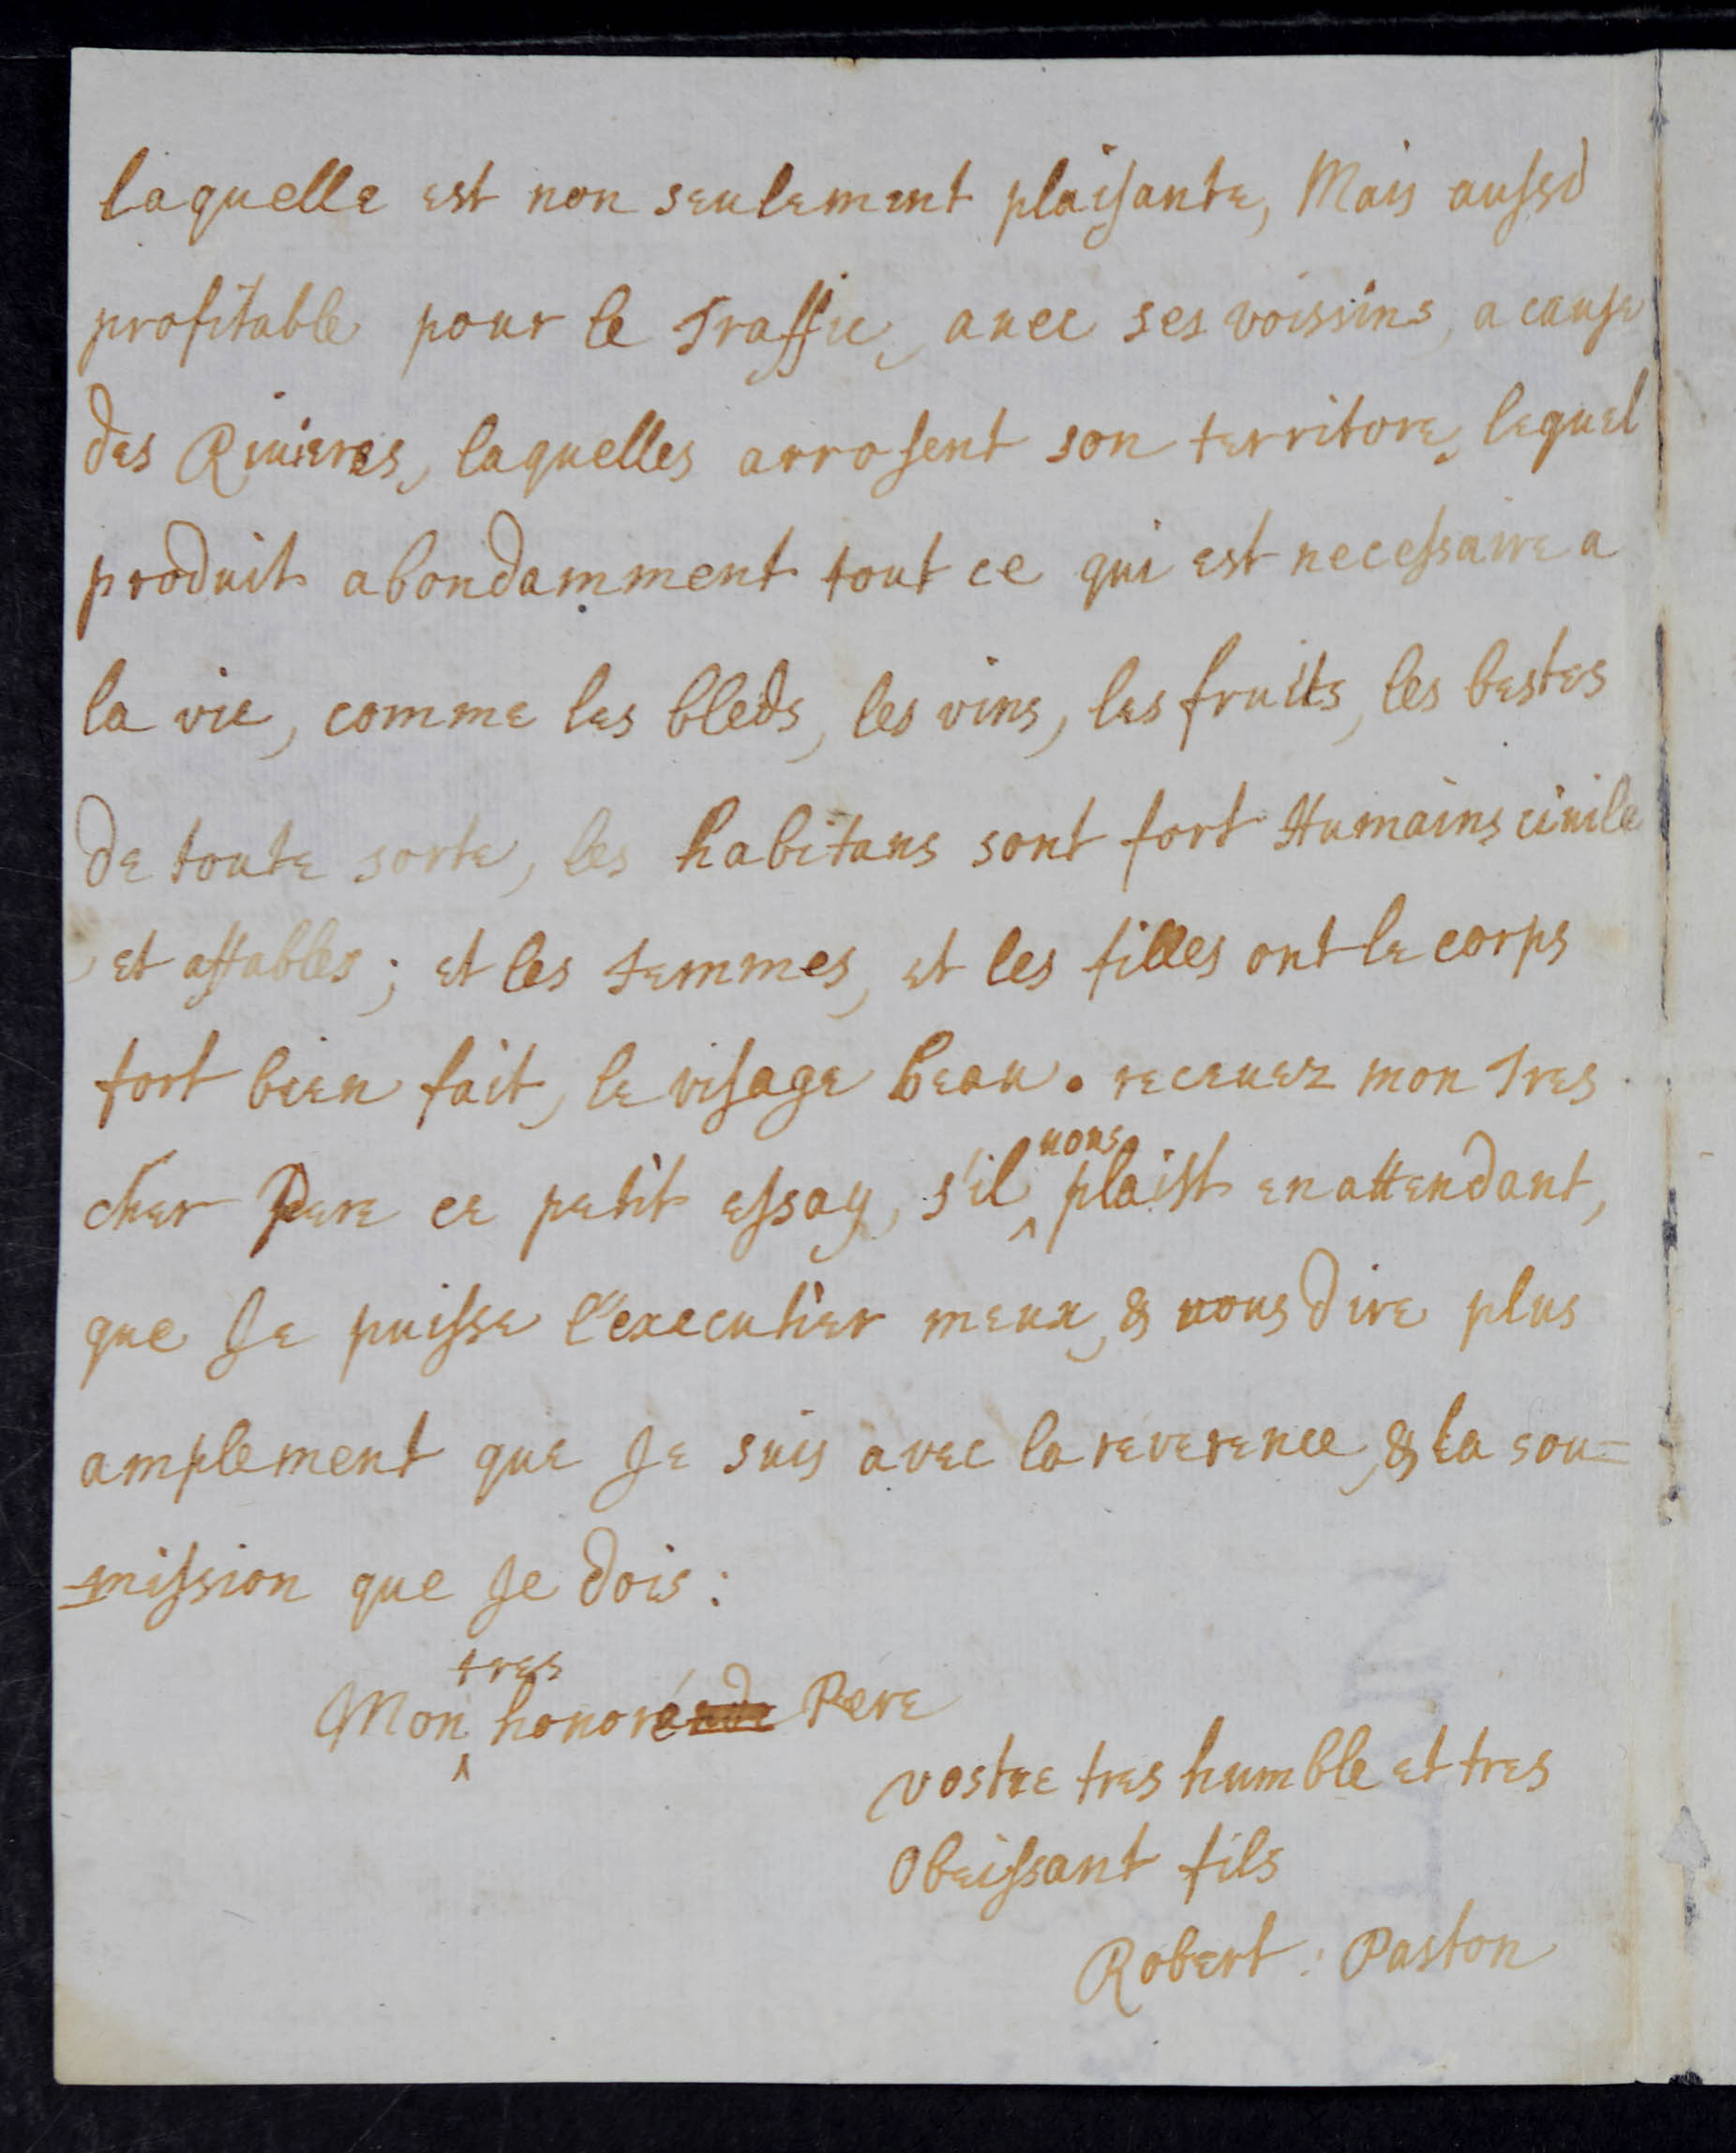 laquelle est non seulement plaisante, Mais aussi
profitable pour le Traffic, auec ses voissins, a cause
des Riuieres, laquelles arrosent son territore, lequel
produit abondamment tout ce qui est necessaire a
la vie, comme les bleds, les vins, les fruits, les bestes
de toute sorte, les habitans sont fort Humains ciuile
et affables; et les femmes, et les filles ont le corps
fort bien fait, le visage beau. receuez mon Tres
cher Pere ce petit essay, s'il uous plaist en attendant,
que Je puisse l'executier meux, & uous dire plus
amplement que Je suis avec la reverence, & la sou=
-mission que Je dois:
Mon tres honoré Pere
vostre tres humble et tres
Obeissant fils
Robert: Paston